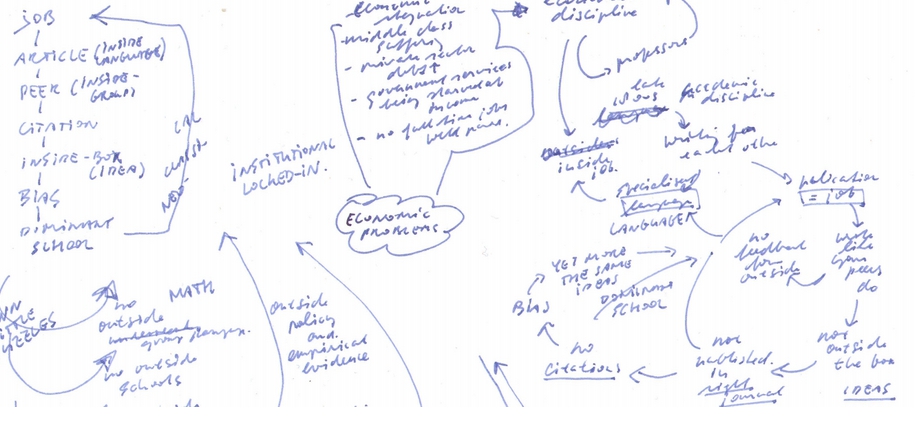 JOB
ARTICLE (INSIDE
LANGUAGE)
PEER (INSIDE-
GROUP)
CITATION
INSIDE-BOX
(IDEA)
BIAS
DOMINANT
SCHOOL
INSTITUTIONAL
LOCKED-IN.
- middle class
suffering
- private sector
debt↑
- government services
being starved at
income
- no full time jobs
well paid.
ECONOMIC
PROBLEMS
discipline
professors
academic
discipline
writing for
each other
inside
job.
specialised
language
LANGUAGE
publication
= job
write
like
your
peers
do
no
feedback
from
outside
not
outside
the box
IDEAS
not
published
in
right
journal
no
citations
BIAS
YET MORE
THE SAME
IDEAS
DOMINANT
SCHOOL
MATH
no
outside
group
no outside
schools
outside
policy
and
empirical
evidence